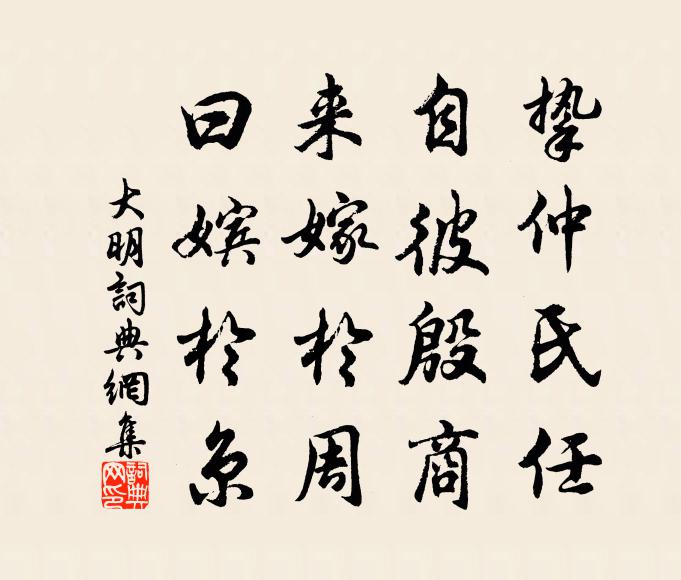 挚仲氏任
自彼殷商
来嫁於周
曰嫔於京
大明詞典網集
詞典网印